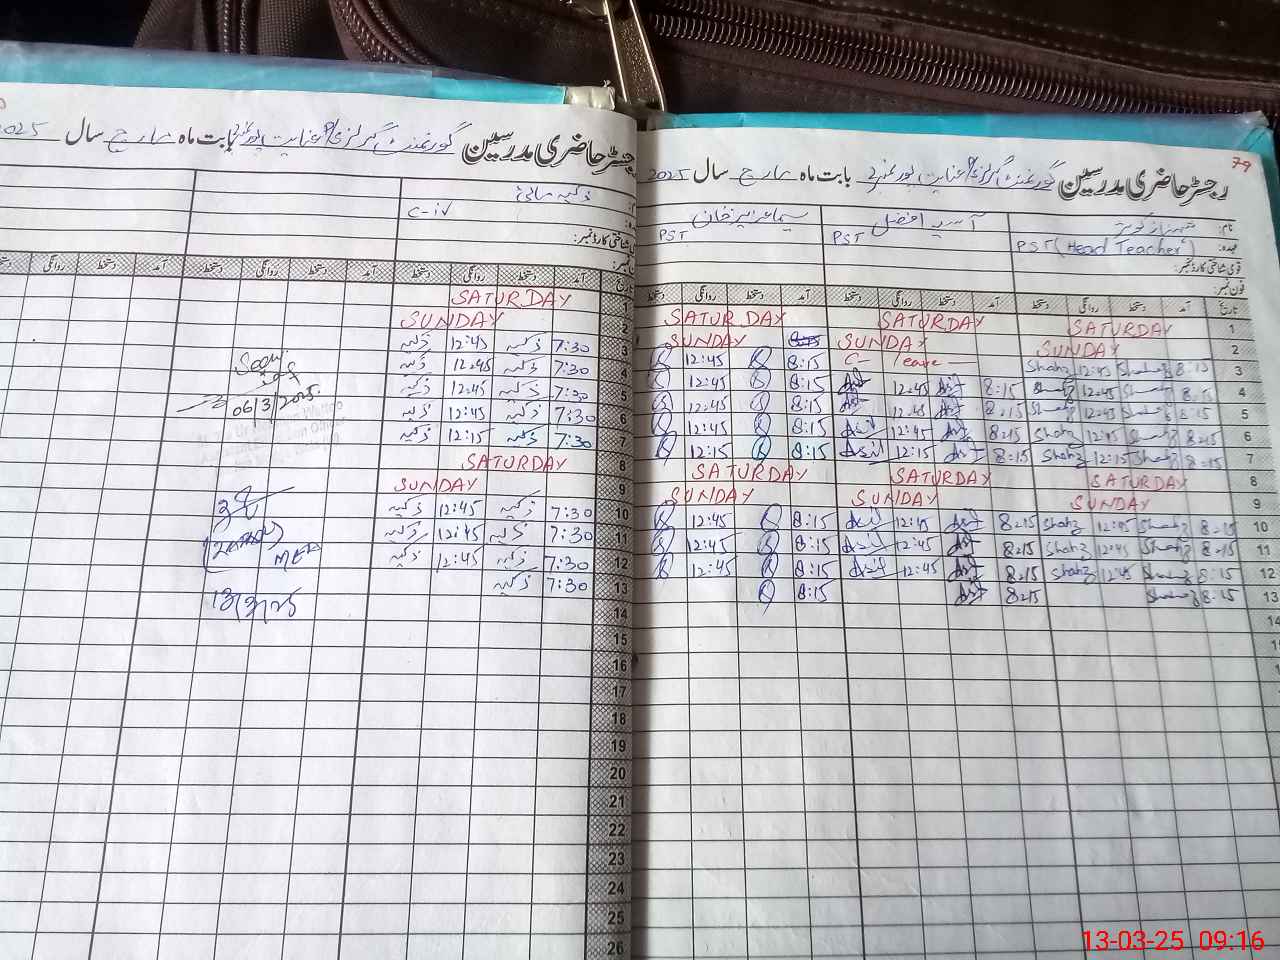 79
رجسٹر حاضری مدرسین گورنمنٹ گرلز عنایت پور نمبر 2 بابت ماہ مارچ سال 2025
نام: شہناز کوثر آسیہ افضل
عہدہ: PST (Head Teacher) PST PST
قومی شناختی کارڈ نمبر:
فون نمبر:
تاریخ آمد دستخط روانگی دستخط آمد دستخط روانگی دستخط آمد دستخط روانگی دستخط
1 SATURDAY SATURDAY SATURDAY
2 SUNDAY SUNDAY SUNDAY
3 8:15 Shahz 12:45 Shahz C- leave 8:15 12:45
4 8:15 Shahz 12:45 Shahz 8:15 12:45 8:15 12:45
5 8:15 Shahz 12:45 Shahz 8:15 12:45 8:15 12:45
6 8:15 Shahz 12:45 Shahz 8:15 12:45 8:15 12:45
7 8:15 Shahz 12:15 Shahz 8:15 12:15 8:15 12:15
8 SATURDAY SATURDAY SATURDAY
9 SUNDAY SUNDAY SUNDAY
10 8:15 Shahz 12:45 Shahz 8:15 12:45 8:15 12:45
11 8:15 Shahz 12:45 Shahz 8:15 12:45 8:15 12:45
12 8:15 Shahz 12:45 Shahz 8:15 12:45 8:15 12:45
13 8:15 Shahz 8:15 8:15
14
15
رجسٹر حاضری مدرسین گورنمنٹ گرلز عنایت پور نمبر 2 بابت ماہ مارچ سال 2025
ذکیہ مائی
C-iv
قومی شناختی کارڈ نمبر:
آمد دستخط روانگی دستخط آمد دستخط روانگی دستخط آمد دستخط روانگی
1 SATURDAY
2 SUNDAY
3 7:30 ذکیہ 12:45 ذکیہ
4 7:30 ذکیہ 12:45 ذکیہ
5 7:30 ذکیہ 12:45 ذکیہ
6 7:30 ذکیہ 12:45 ذکیہ
7 7:30 ذکیہ 12:15 ذکیہ
8 SATURDAY
9 SUNDAY
10 7:30 ذکیہ 12:45 ذکیہ
11 7:30 ذکیہ 12:45 ذکیہ
12 7:30 ذکیہ 12:45 ذکیہ
13 7:30 ذکیہ
14
15
16
17
18
19
20
21
22
23
24
25
26
06/3/2025
MEA
13/3/25
13-03-25 09:16